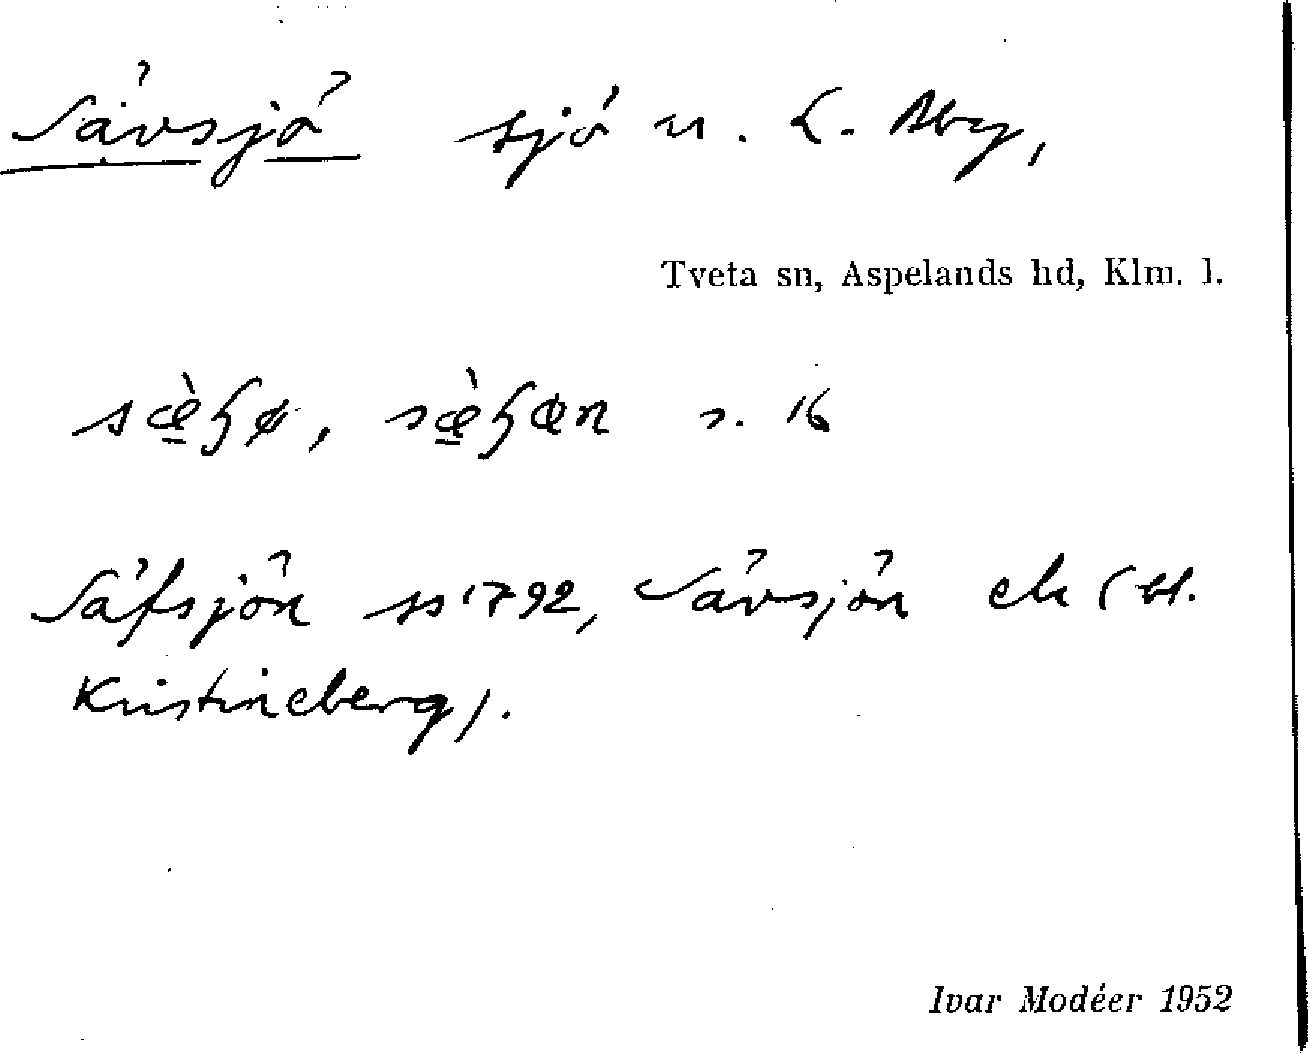 Sävsjö sjö u. L. Aby,
Tveta sn, Aspelands hd, Klm. l.
sæ̀ɧø, sæ̀ɧœn s. 16
Säfsjön ss 1792, Sävsjön ek (bl.
Kristineberg).
Ivar Modéer 1952